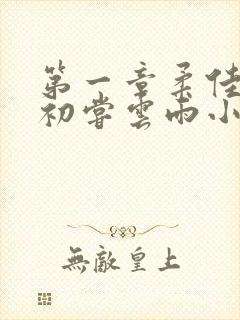 第一章柔佳
初尝雲雨小
無敵皇上